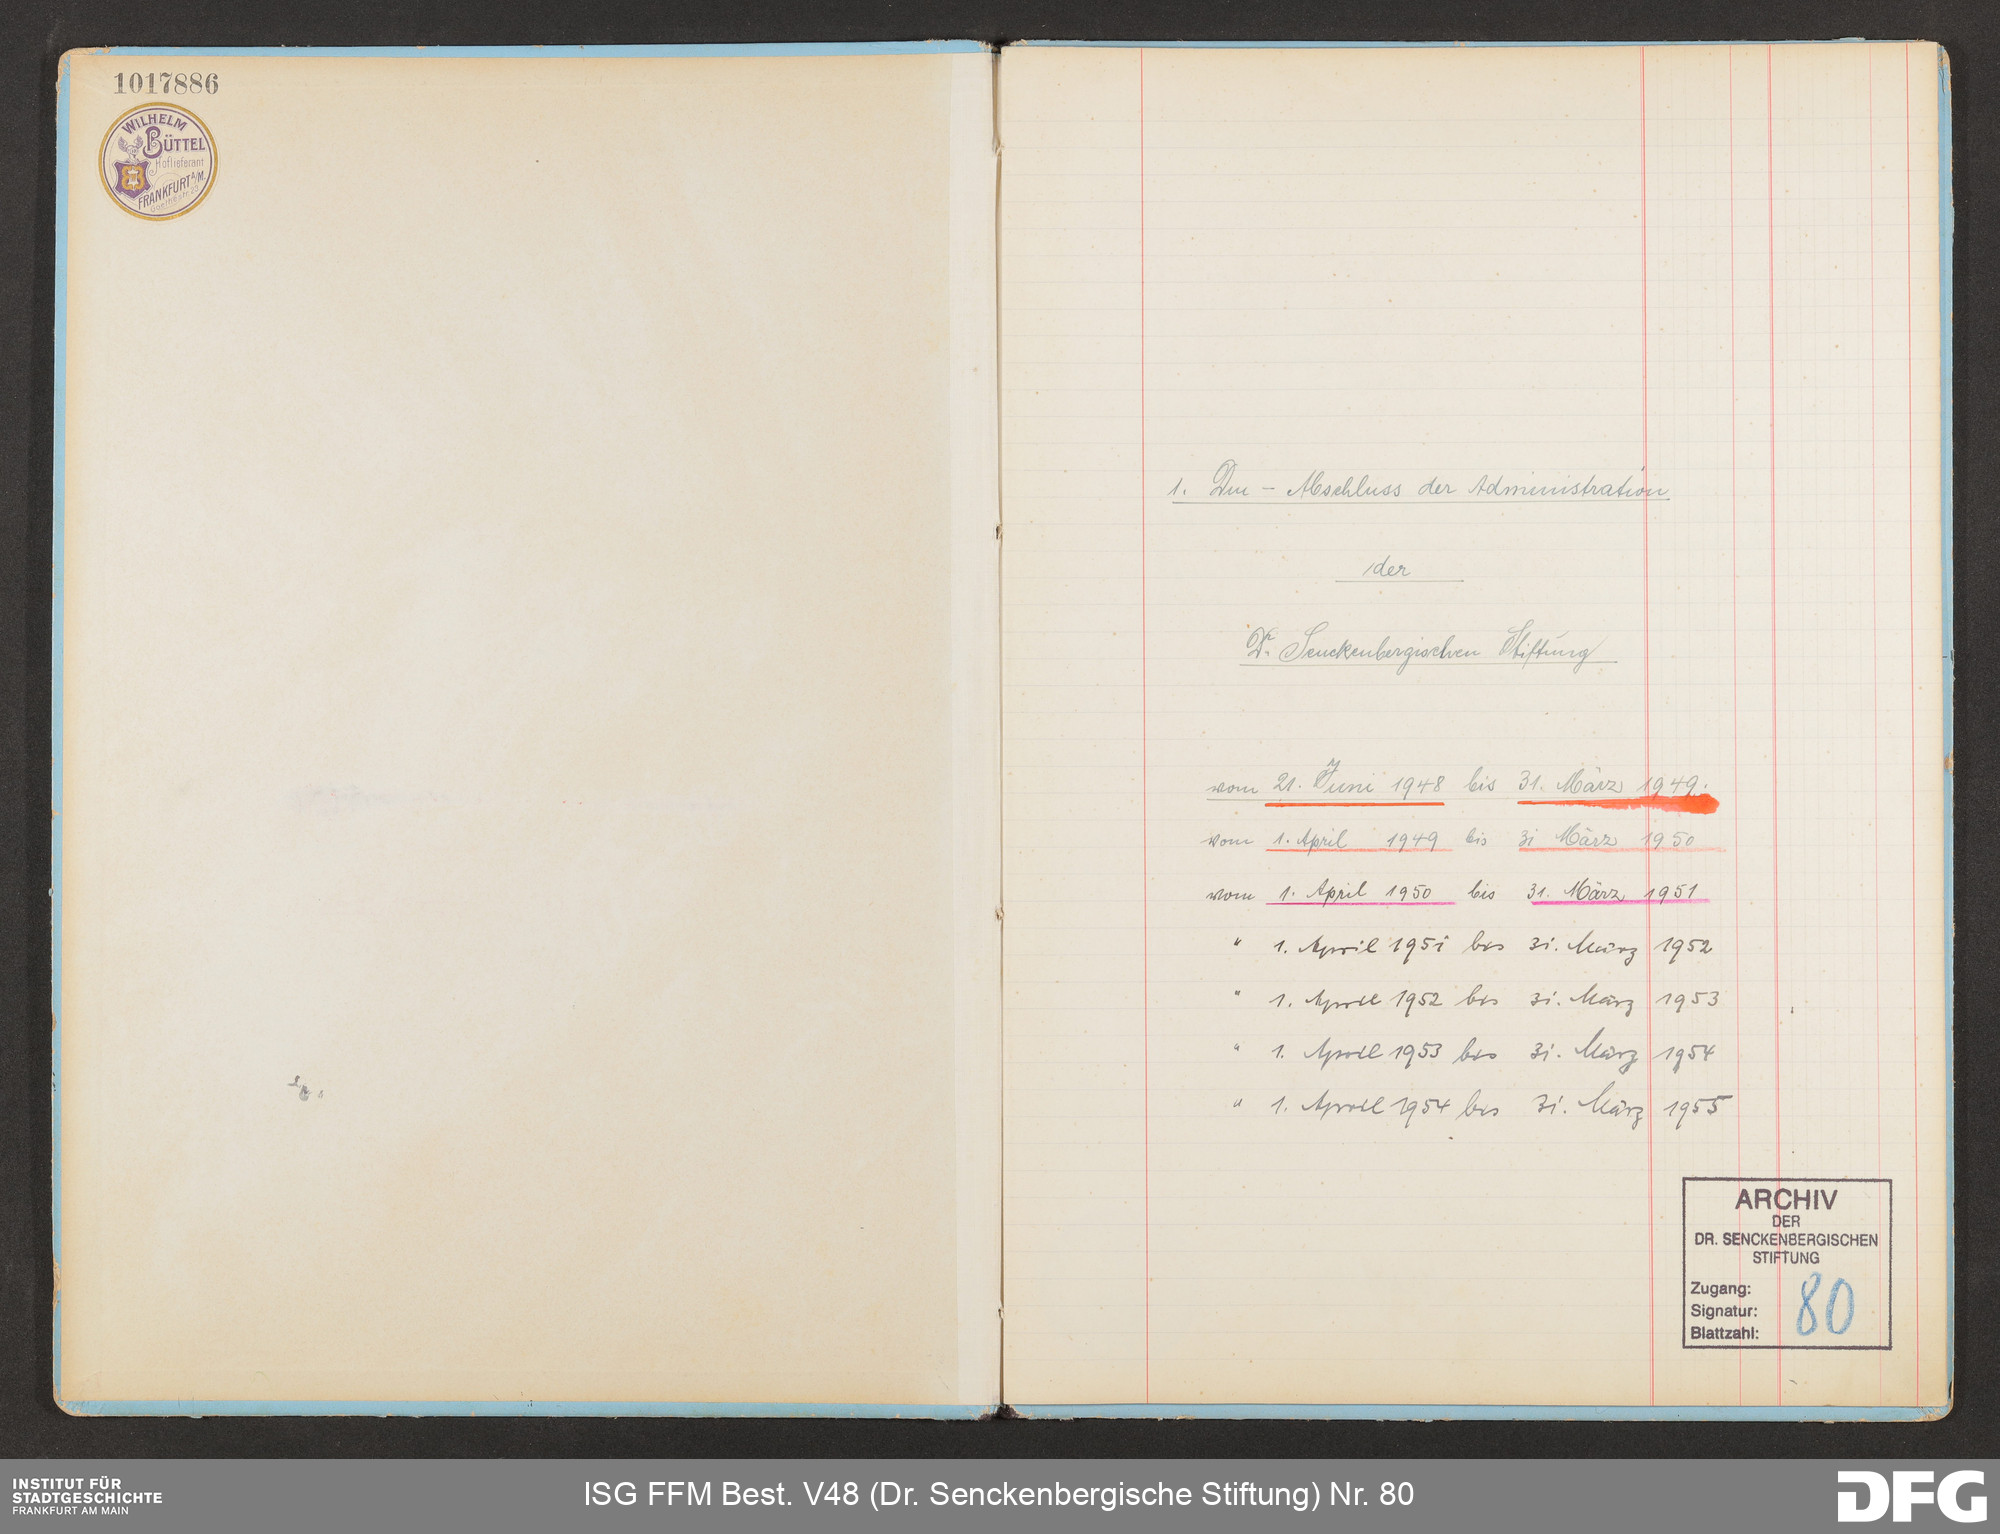 1017886
WILHELM
BÜTTEL
Hoflieferant
FRANKFURT A/M.
Goethestr. 23
1. Dm - Abschluss der Administration
der
Dr. Senckenbergischen Stiftung
vom 21. Juni 1948 bis 31. März 1949.
vom 1. April 1949 bis 31 März 1950
vom 1. April 1950 bis 31. März 1951
" 1. April 1951 bis 31. März 1952
" 1. April 1952 bis 31. März 1953
" 1. April 1953 bis 31. März 1954
" 1. April 1954 bis 31. März 1955
ARCHIV
DER
DR. SENCKENBERGISCHEN
STIFTUNG
Zugang:
Signatur: 80
Blattzahl:
INSTITUT FÜR
STADTGESCHICHTE
FRANKFURT AM MAIN
ISG FFM Best. V48 (Dr. Senckenbergische Stiftung) Nr. 80
DFG